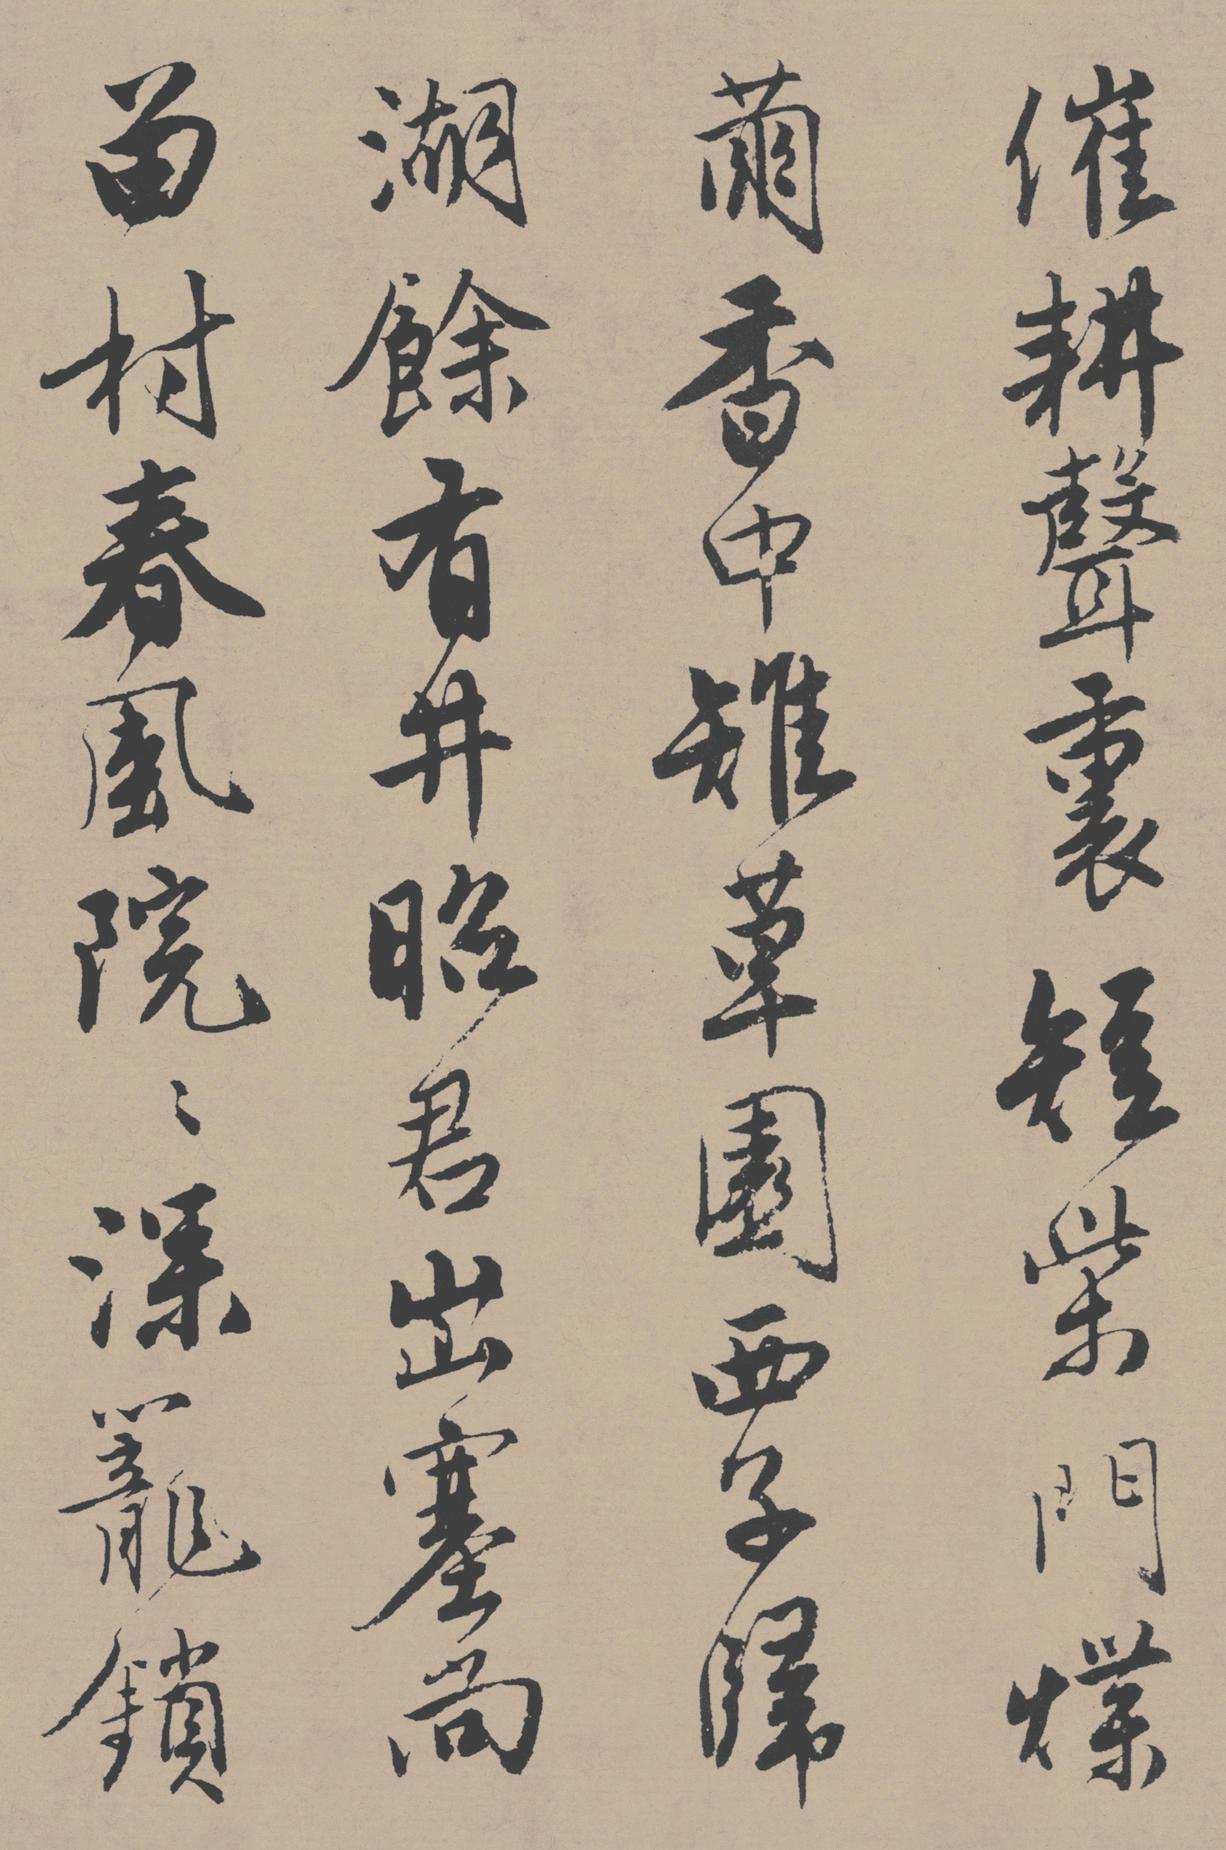 催耕聲裏短柴門蝶
繭香中雉草園西子歸
湖餘有井昭君出塞尚
留村春風院〻深籠鎖